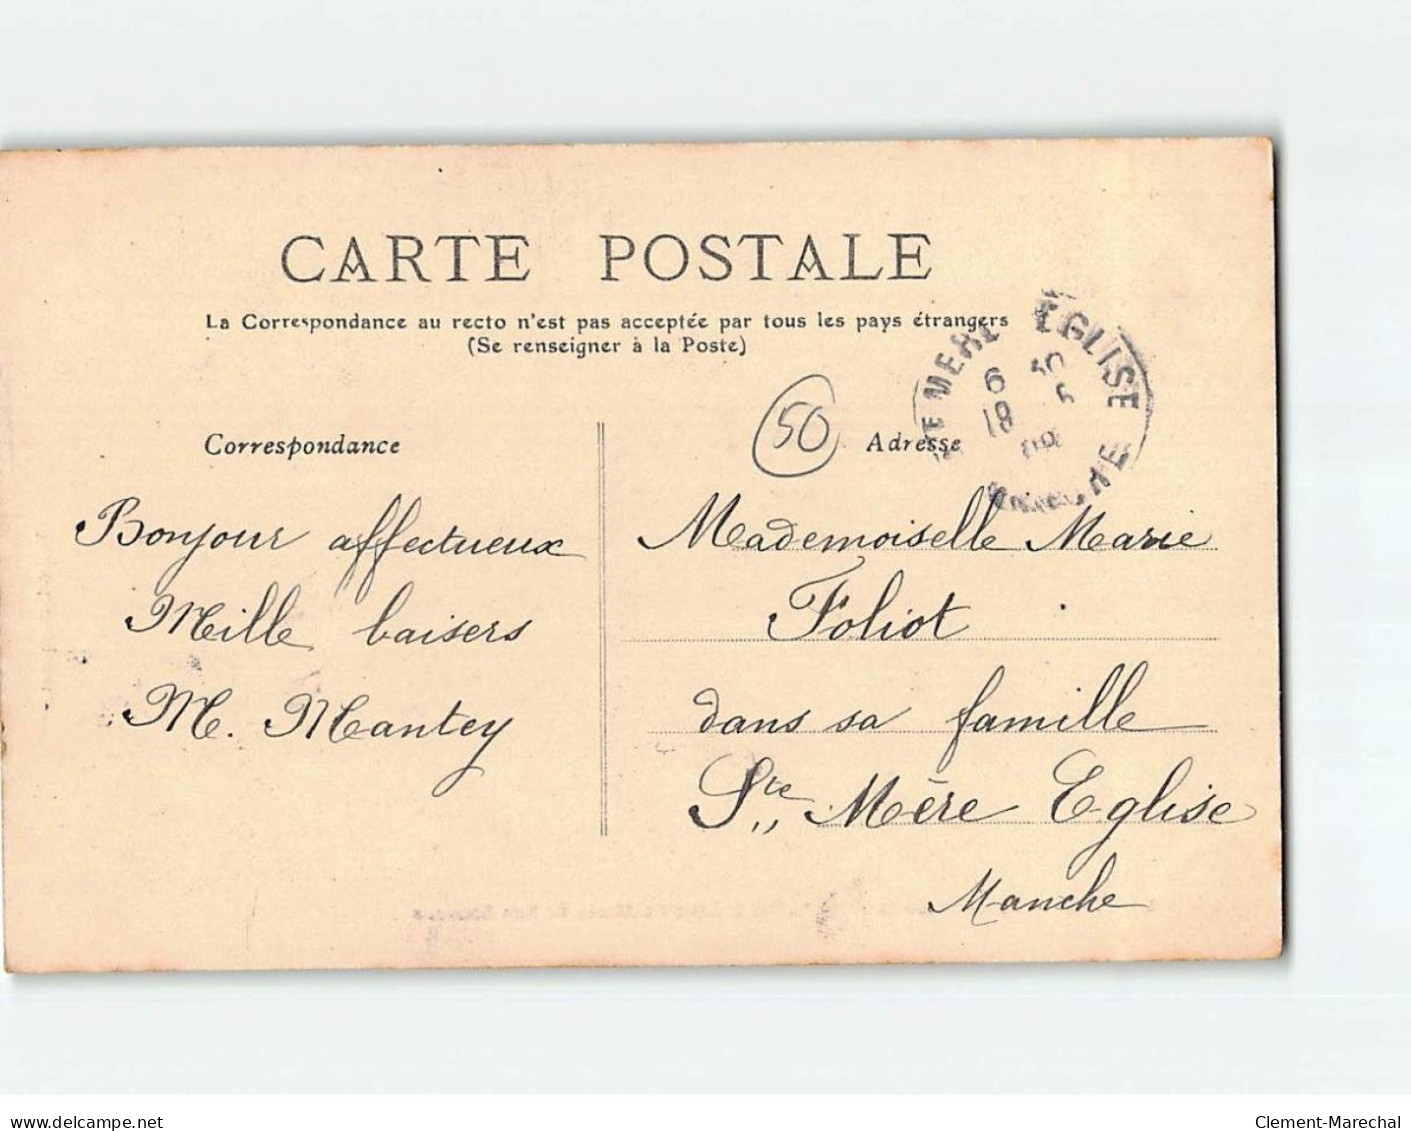 CARTE POSTALE
La Correspondance au recto n'est pas acceptée par tous les pays étrangers
(Se renseigner à la Poste)
MÈRE EGLISE
6 30
18 5
50
Correspondance
Adresse
Bonjour affectueux
Mille baisers
M. Mantey
Mademoiselle Marie
Foliot
dans sa famille
Ste Mère Eglise
Manche
delcampe.net
Clement-Marechal